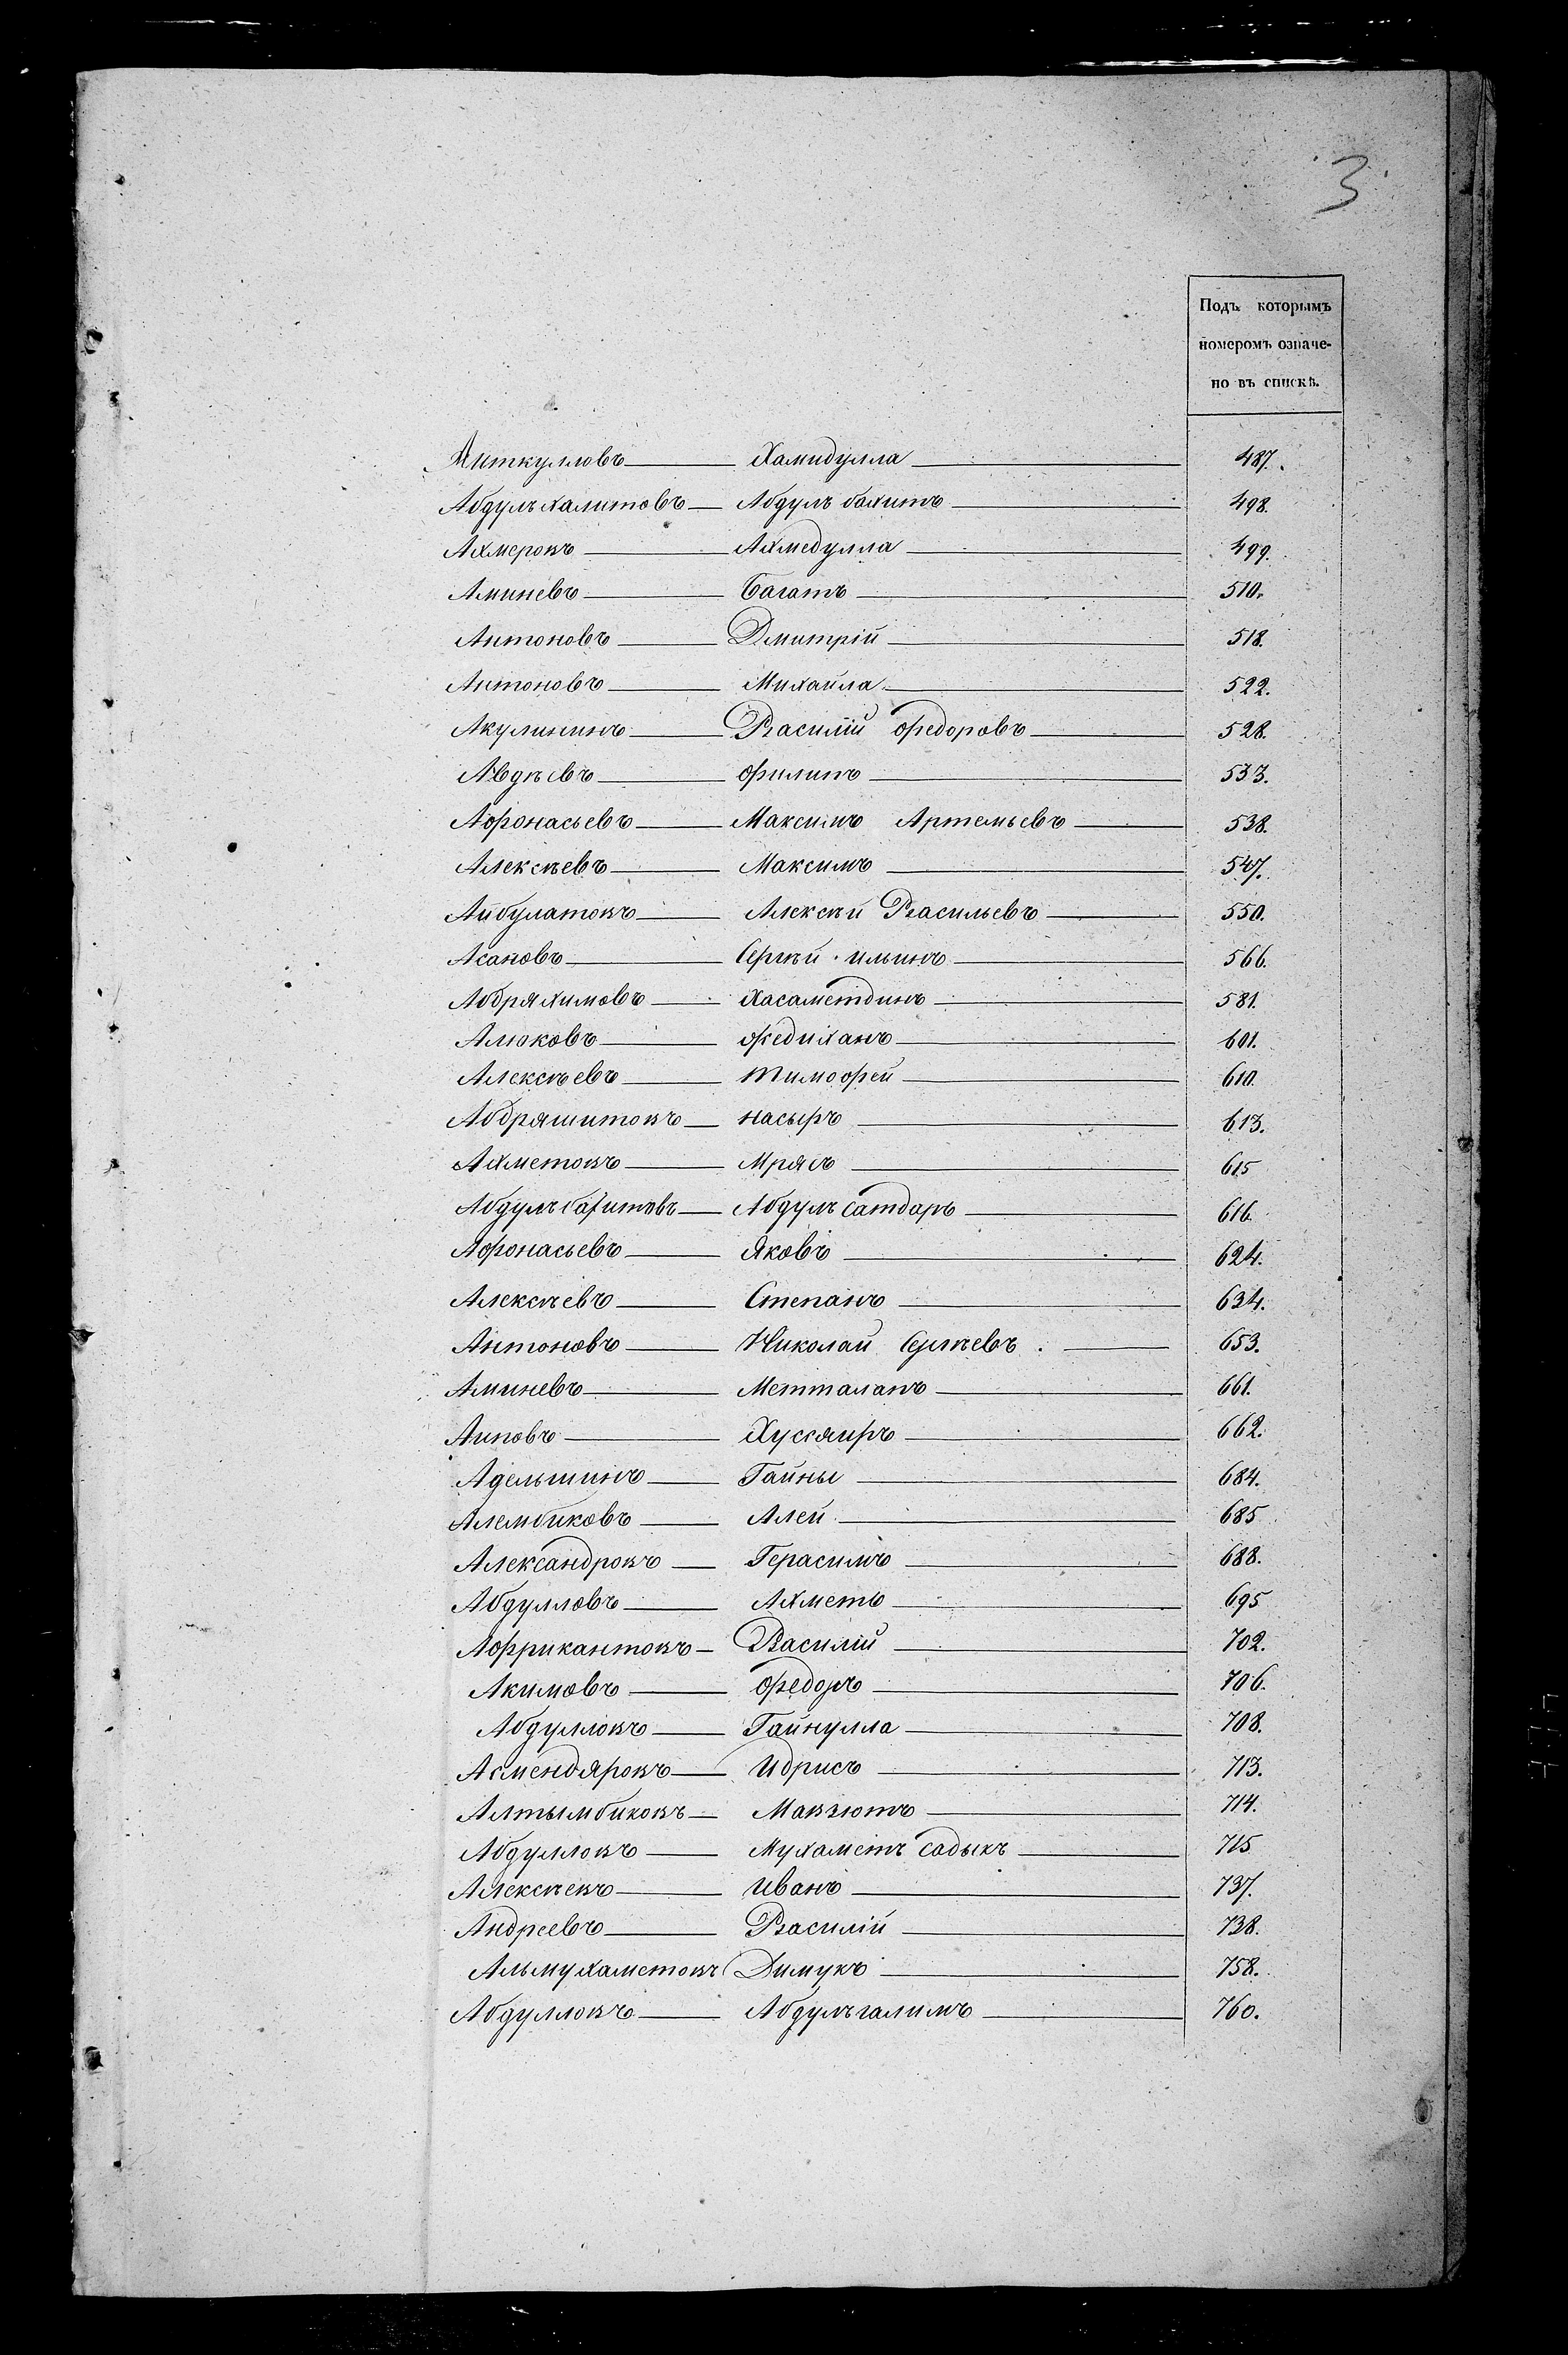 3
Подъ которымъ
номеромъ означе-
но въ спискѣ.
Аиткулловъ Хамидулла 487.
Абдулъ халитовъ Абдулъ вахитъ 498.
Ахмеровъ Ахмедулла 499.
Аминевъ Багатъ 510.
Антоновъ Дмитрій 518.
Антоновъ Михайла 522.
Акулининъ Василій Федоровъ 528.
Авдѣевъ Филипъ 533.
Афонасьевъ Максимъ Артемьевъ 538.
Алексѣевъ Максимъ 547.
Айбулатовъ Алексѣй Васильевъ 550.
Асановъ Сергѣй Ильинъ 566.
Абдряхимовъ Хасаметдинъ 581.
Алюковъ Федиханъ 601.
Алексѣевъ Тимофей 610.
Абдряшитовъ Насыръ 613.
Ахметовъ Мрясъ 615
Абдулъ Сатдаръ 616.
Афонасьевъ Яковъ 624.
Алексѣевъ Степанъ 634.
Антоновъ Николай Сергѣевъ. 653.
Аминевъ 661.
Аиповъ 662.
Адельшинъ Гайны 684.
Алембиковъ Алей 685
Александровъ Герасимъ 688.
Абдулловъ Ахметъ 695
Африкантовъ Василій 702.
Акимовъ Федоръ 706.
Абдулловъ Гайнулла 708.
Асмендяровъ Идрисъ 713.
Алтымбиковъ Мавзютъ 714.
Абдулловъ Мухаметъ Садыкъ 715
Алексѣевъ Иванъ 737.
Андреевъ Василій 738.
Альмухаметовъ Димукъ 758.
Абдулловъ Абдулъгалимъ 760.